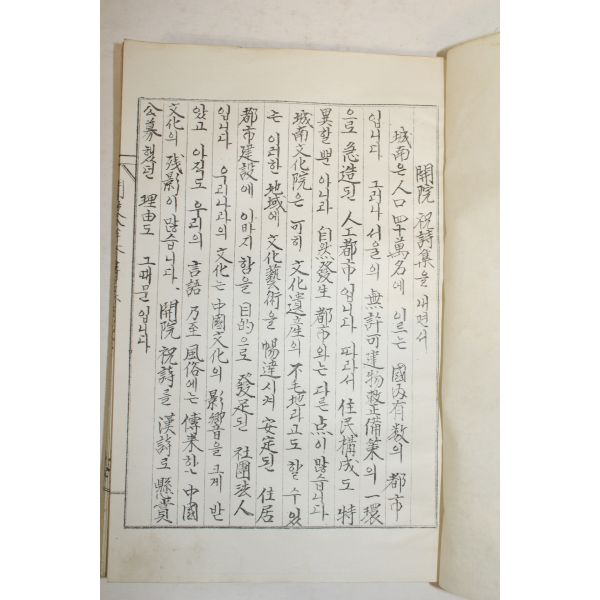 開院 祝詩集을 내면서
城南은 人口 四十萬名에 이르는 國內有数의 都市
입니다 그러나 서울의 無許可建物整備策의 一環
으로 急造된 人工都市입니다 따라서 住民構成도 特
異할뿐 아니라 自然發生 都市와는 다른 点이 많습니다
城南文化院은 可히 文化遺産의 不毛地라고도 할 수 있
는 이러한 地域에 文化藝術을 暢達시켜 安定된 住居
都市建設에 이바지 함을 目的으로 發足된 社團法人
입니다 우리나라의 文化는 中國文化의 影響을 크게 받
았고 아직도 우리의 言語 乃至 風俗에는 傳来한 中國
文化의 残影이 많습니다. 開院 祝詩를 漢詩로 縣賞
公募했던 理由도 그때문입니다